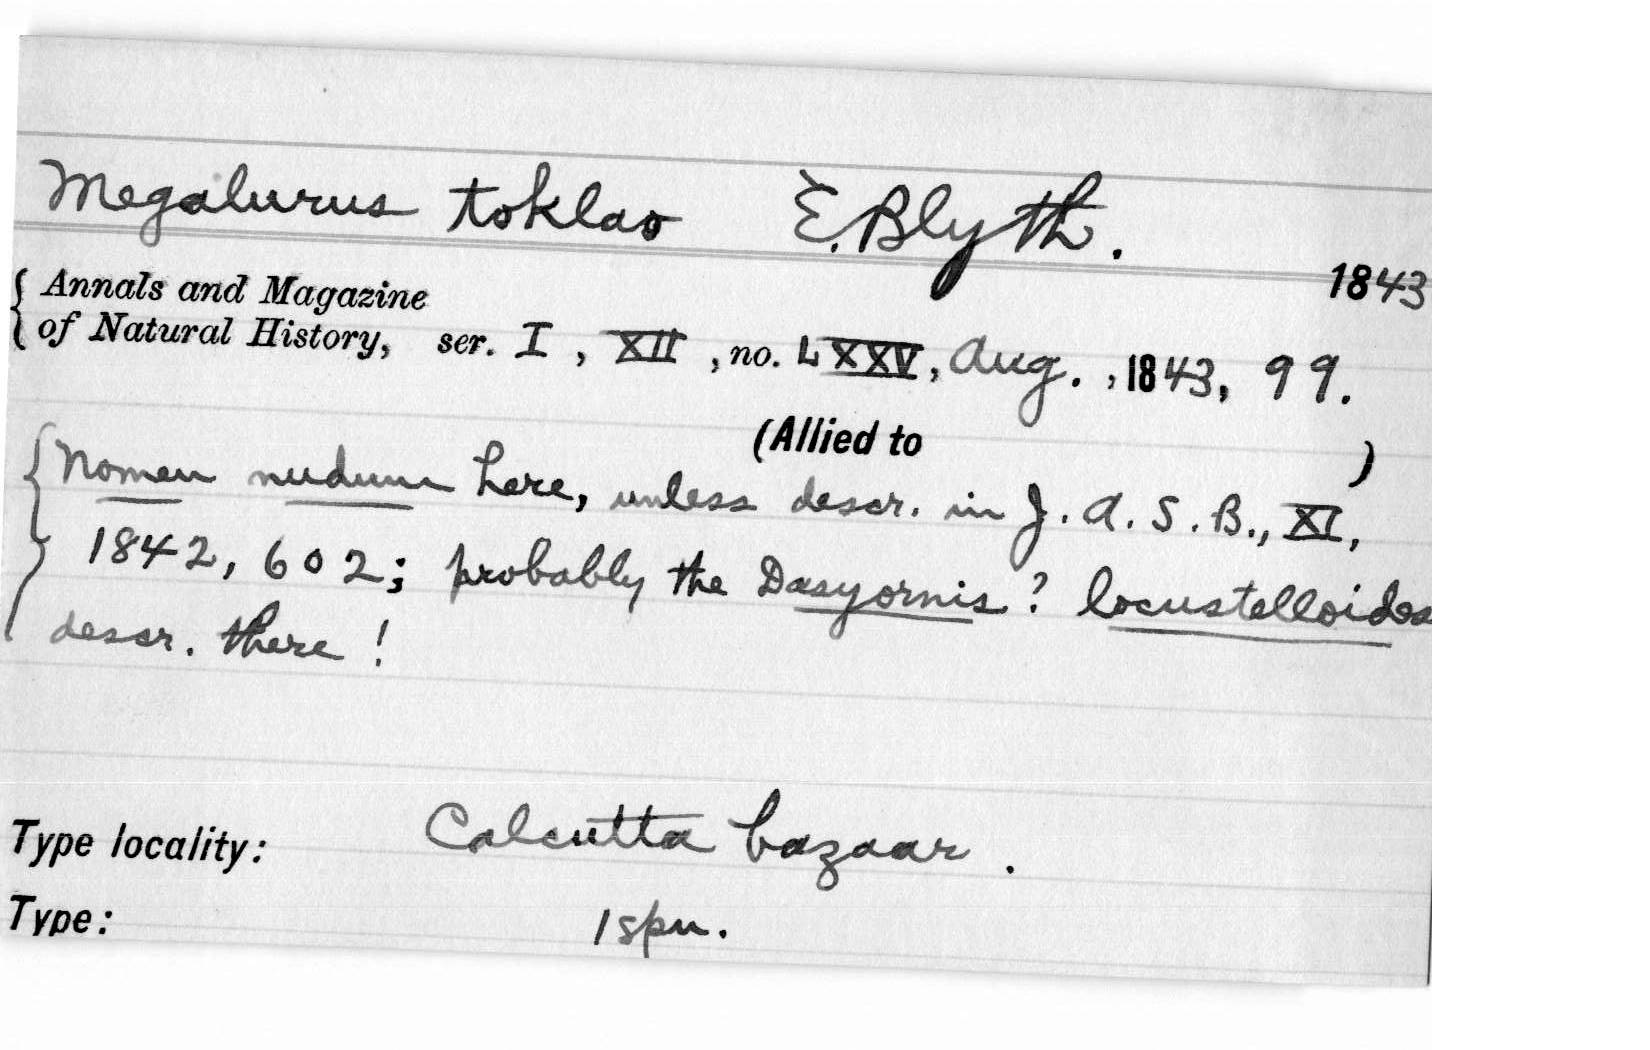 Megalurus toklao E. Blyth.
1843
Annals and Magazine
of Natural History, ser. I, XII, no. LXXV, Aug., 1843, 99.
(Allied to )
Nomen nudum here, unless descr. in J. A. S. B., XI,
1842, 602; probably the Dasyornis? locustelloides
descr. there!
Type locality: Calcutta bazaar.
Type: 1 spn.